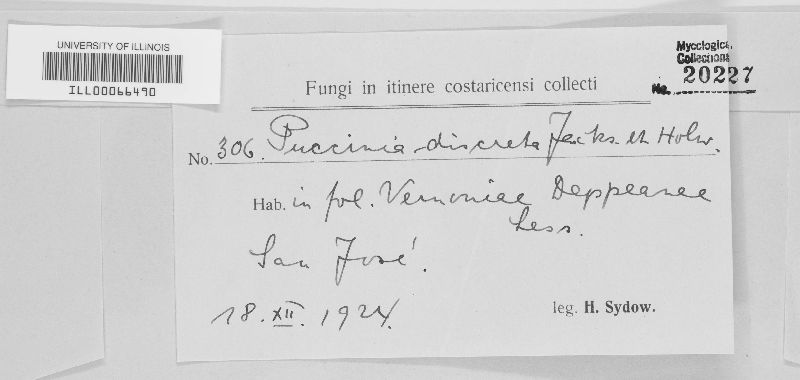 UNIVERSITY OF ILLINOIS
ILL00066490
Mycological
Collections
No. 20227
Fungi in itinere costaricensi collecti
No. 306. Puccinia discreta Jacks. et Holw.
Hab. in fol. Vernoniae Deppeanae
Less.
San José.
18. XII. 1924.
leg. H. Sydow.